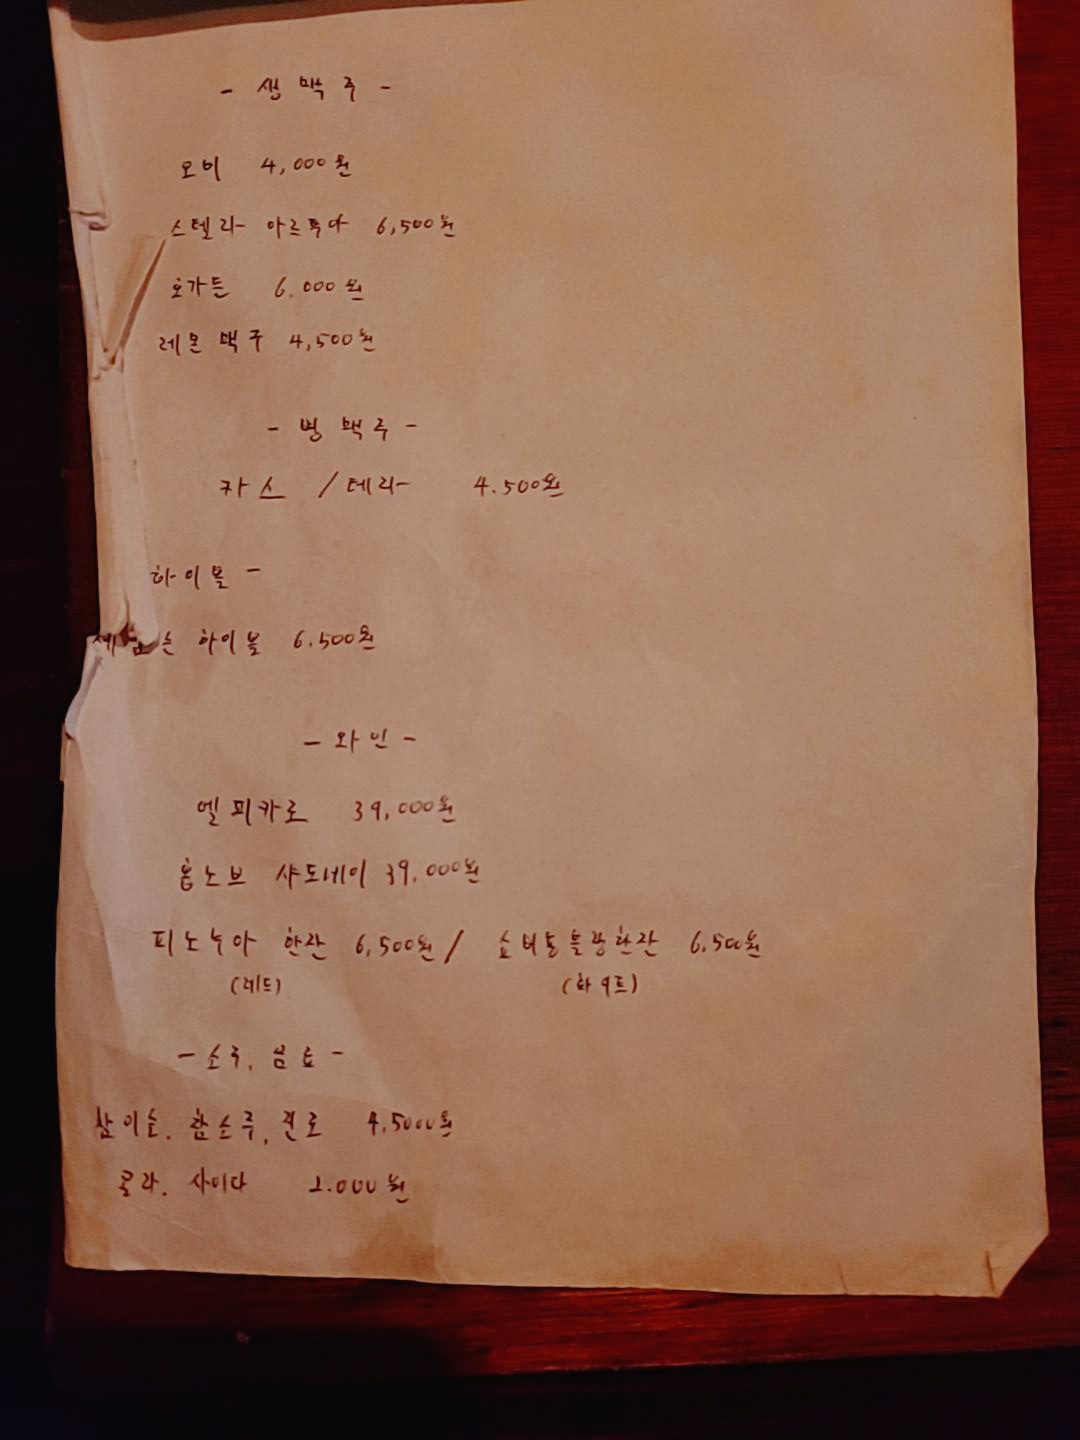 - 생맥주 -
오비 4,000원
스텔라 아르투아 6,500원
호가든 6,000원
레몬 맥주 4,500원
- 병 맥주 -
카스 / 테라 4.500원
하이볼 -
하이볼 6.500원
- 와인 -
엘피카로 39,000원
홉노브 샤도네이 39,000원
피노누아 한잔 6,500원 / 소비뇽블랑한잔 6,500원
(레드) (화이트)
- 소주, 음료 -
참이슬. 참소주, 진로 4,5000원
콜라. 사이다 2.000원